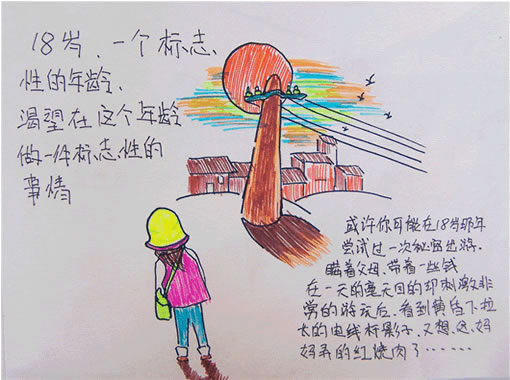 18岁、一个标志、
性的年龄、
渴望在这个年龄
做一件标志性的
事情
或许你可能在18岁那年
尝试过一次秘密出游.
瞒着父母、带着一些钱
在一天的毫无目的却刺激非
常的游玩后、看到黄昏下拉
长的电线杆影子、又想念妈
妈弄的红烧肉了……